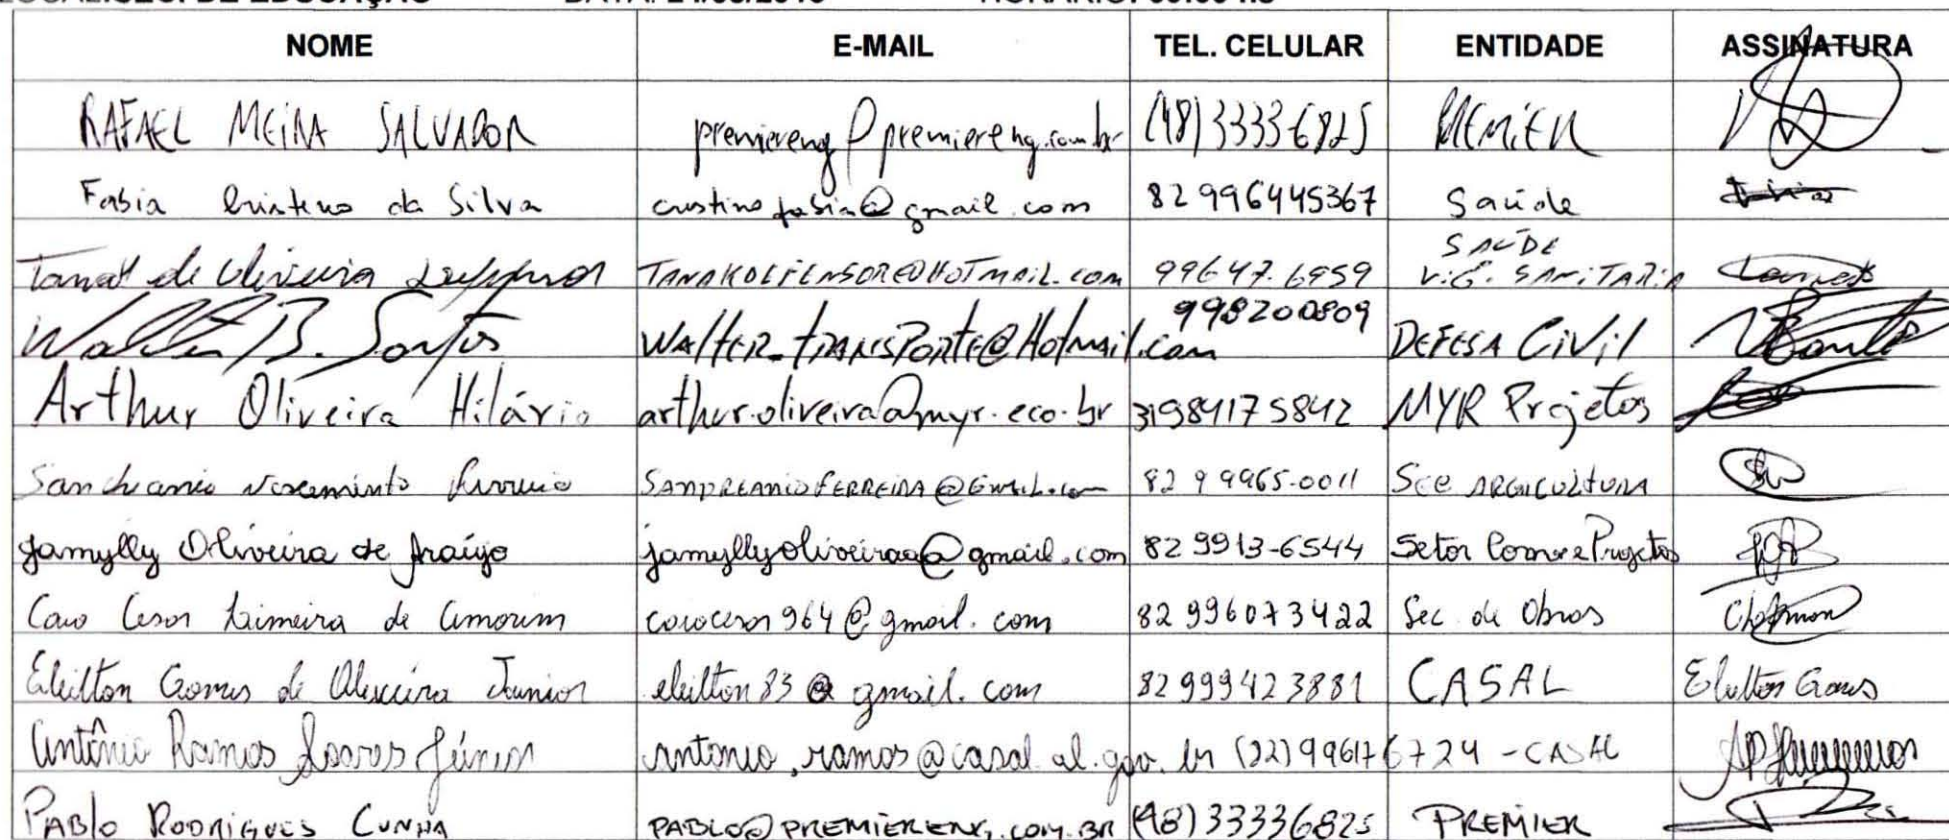 NOME E-MAIL TEL. CELULAR ENTIDADE ASSINATURA
RAFAEL MEIRA SALVADOR premiereng@premiereng.com.br (48)33336825 PREMIER
Fabia Cristina da Silva cristinafabia@gmail.com 82 996445367 Saúde
de Oliveira TANAKDEFENSOR@HOTMAIL.com 99647.6959 SAÚDE VIG. SANITARIA
Walter B. Santos WALTER_TRANSPORTE@Hotmail.com 998200809 DEFESA CIVIL
Arthur Oliveira Hilário arthur.oliveira@myr.eco.br 31984175842 MYR Projetos
Nascimento Ferreira SANDREANIOFERREIRA@Gmail.com 82 99965-0011 Sec ARGRICULTURA
Jamylly Oliveira de Araújo jamyllyoliveiraa@gmail.com 82 9913-6544 Setor Projetos
Caio Cesar Limeira de Amorim caiocesar964@gmail.com 82 996073422 Sec de Obras
Eleilton Gomes de Oliveira Junior eleilton83@gmail.com 82999423881 CASAL Eleilton Gomes
Antônio Ramos Soares Júnior antonio.ramos@casal.al.gov.br (82)996176724 - CASAL
PABLO RODRIGUES CUNHA PABLO@PREMIERENG.COM.BR (48)33336825 PREMIER